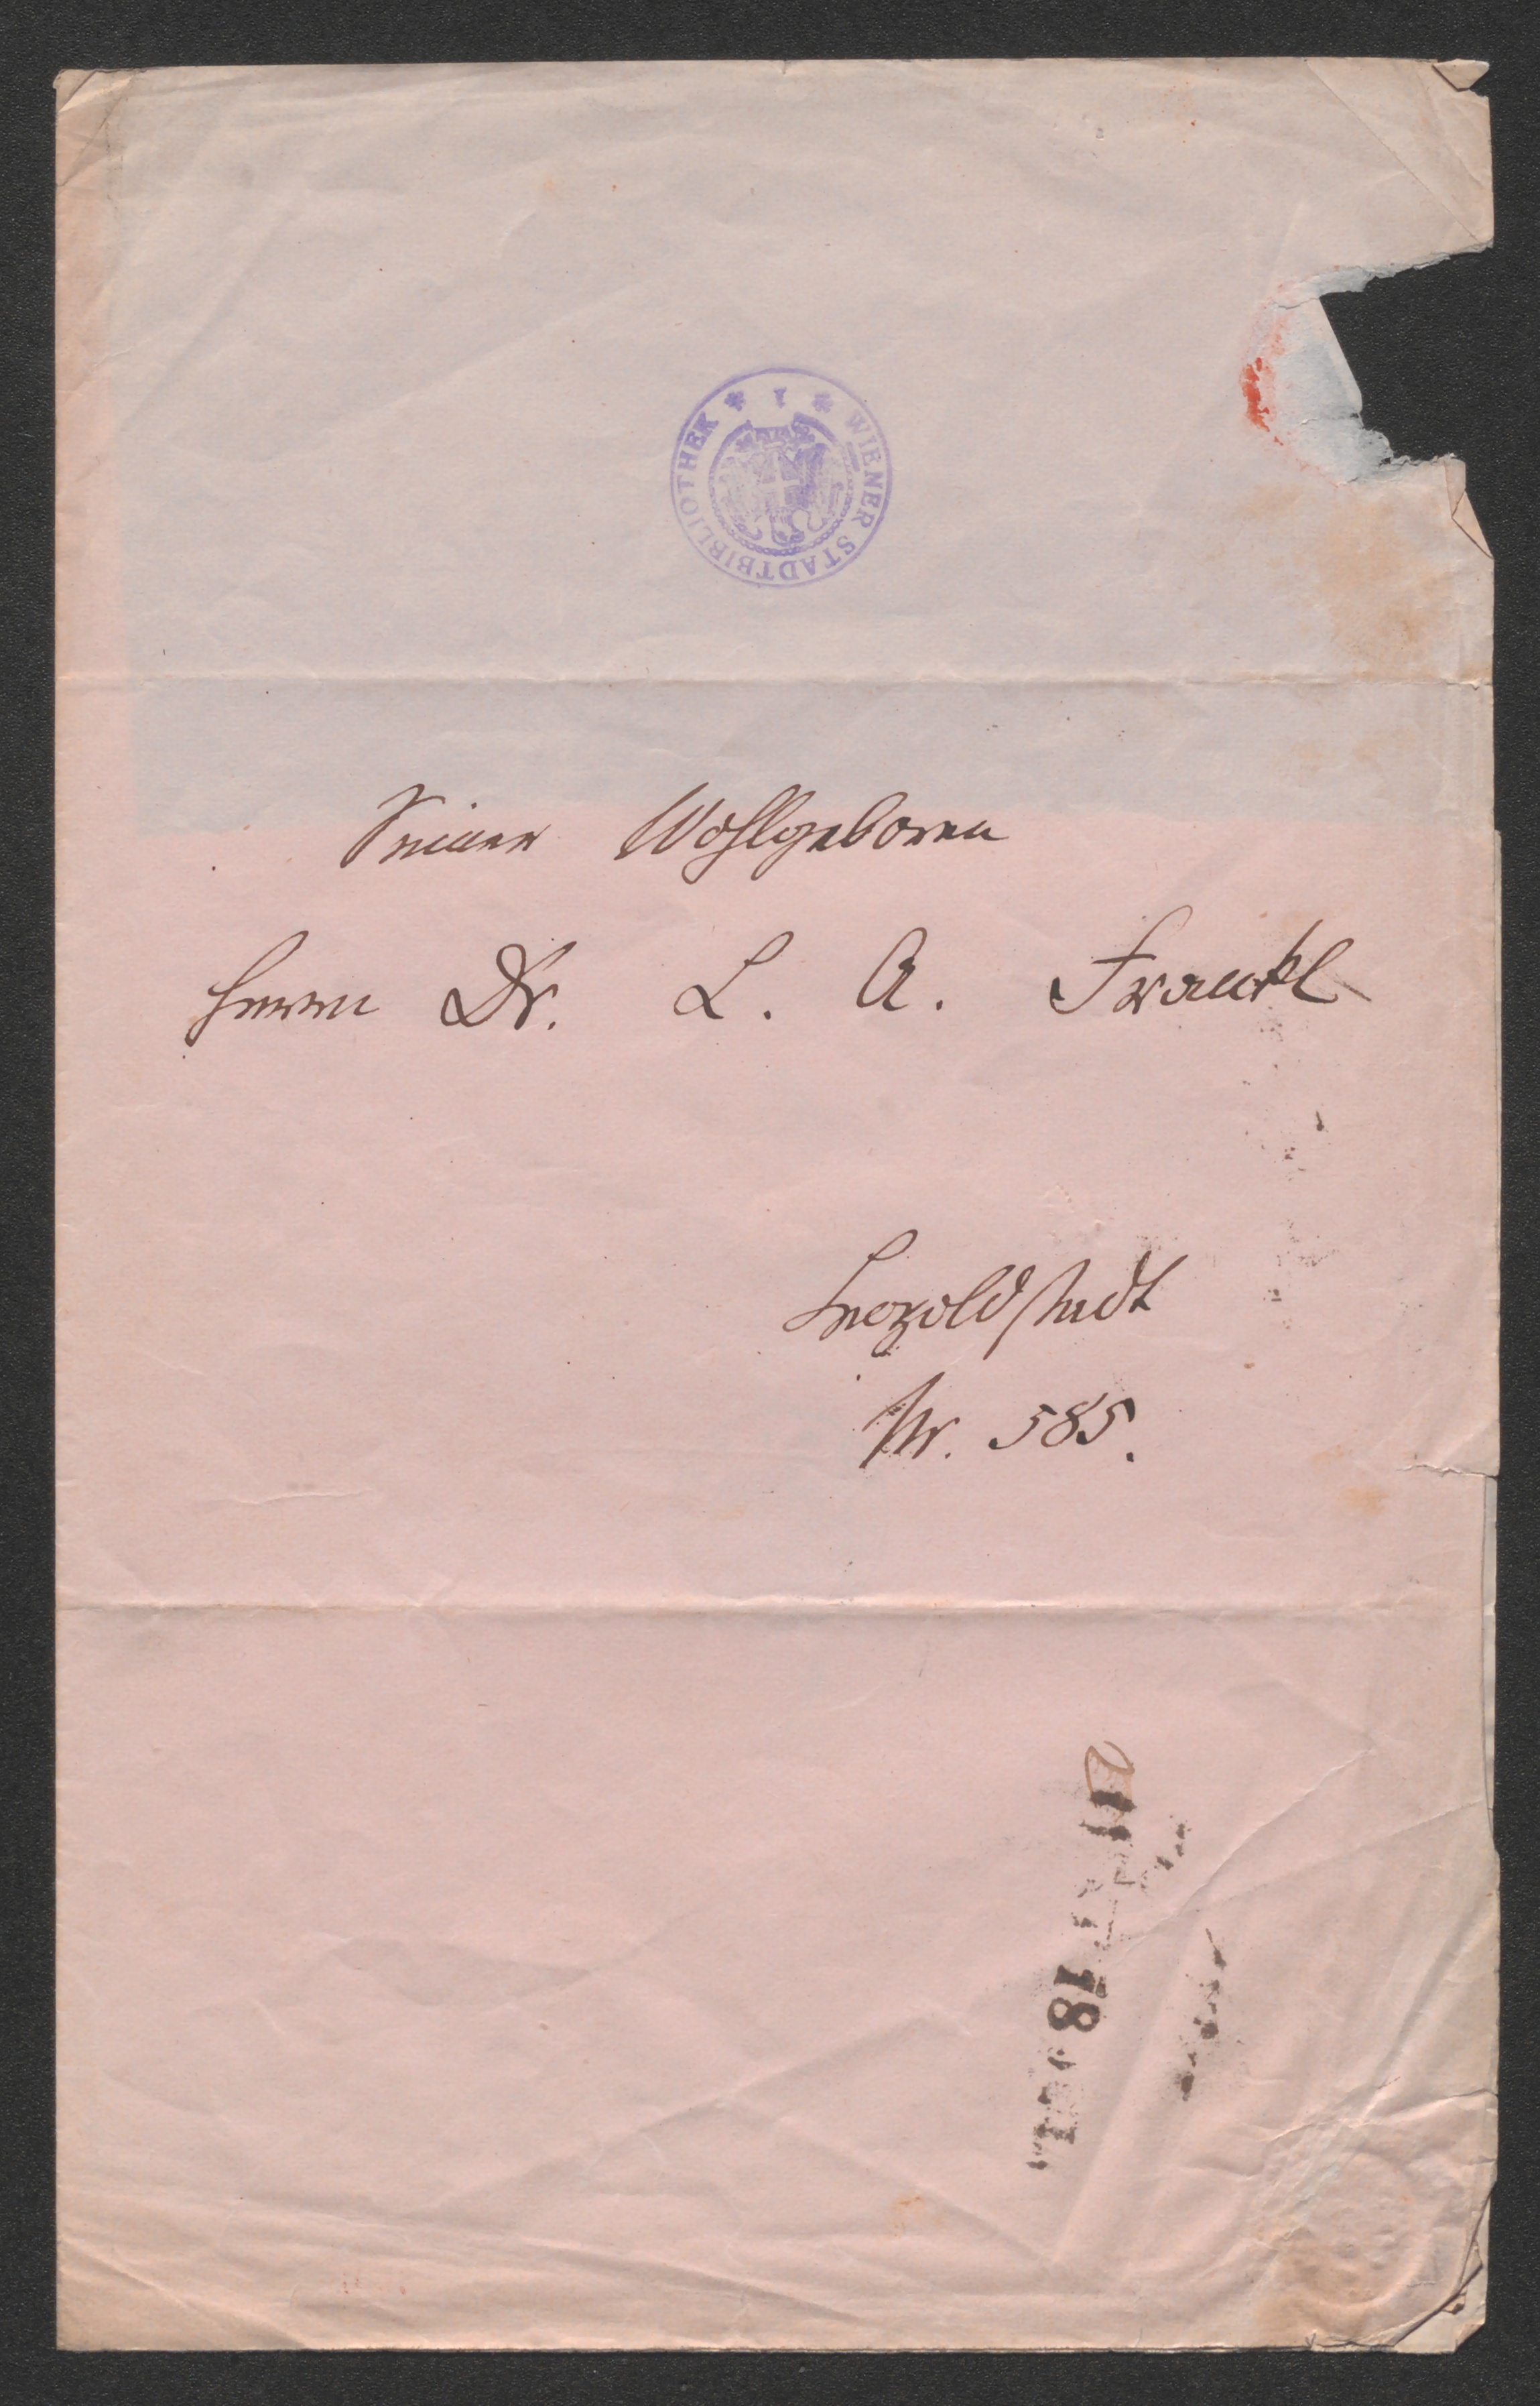 WIENER STADTBIBLIOTHEK * 1 *
Seiner Wohlgeboren
Herrn Dr. L. A. Frankl
Leopoldstadt
Nr. 585.
18